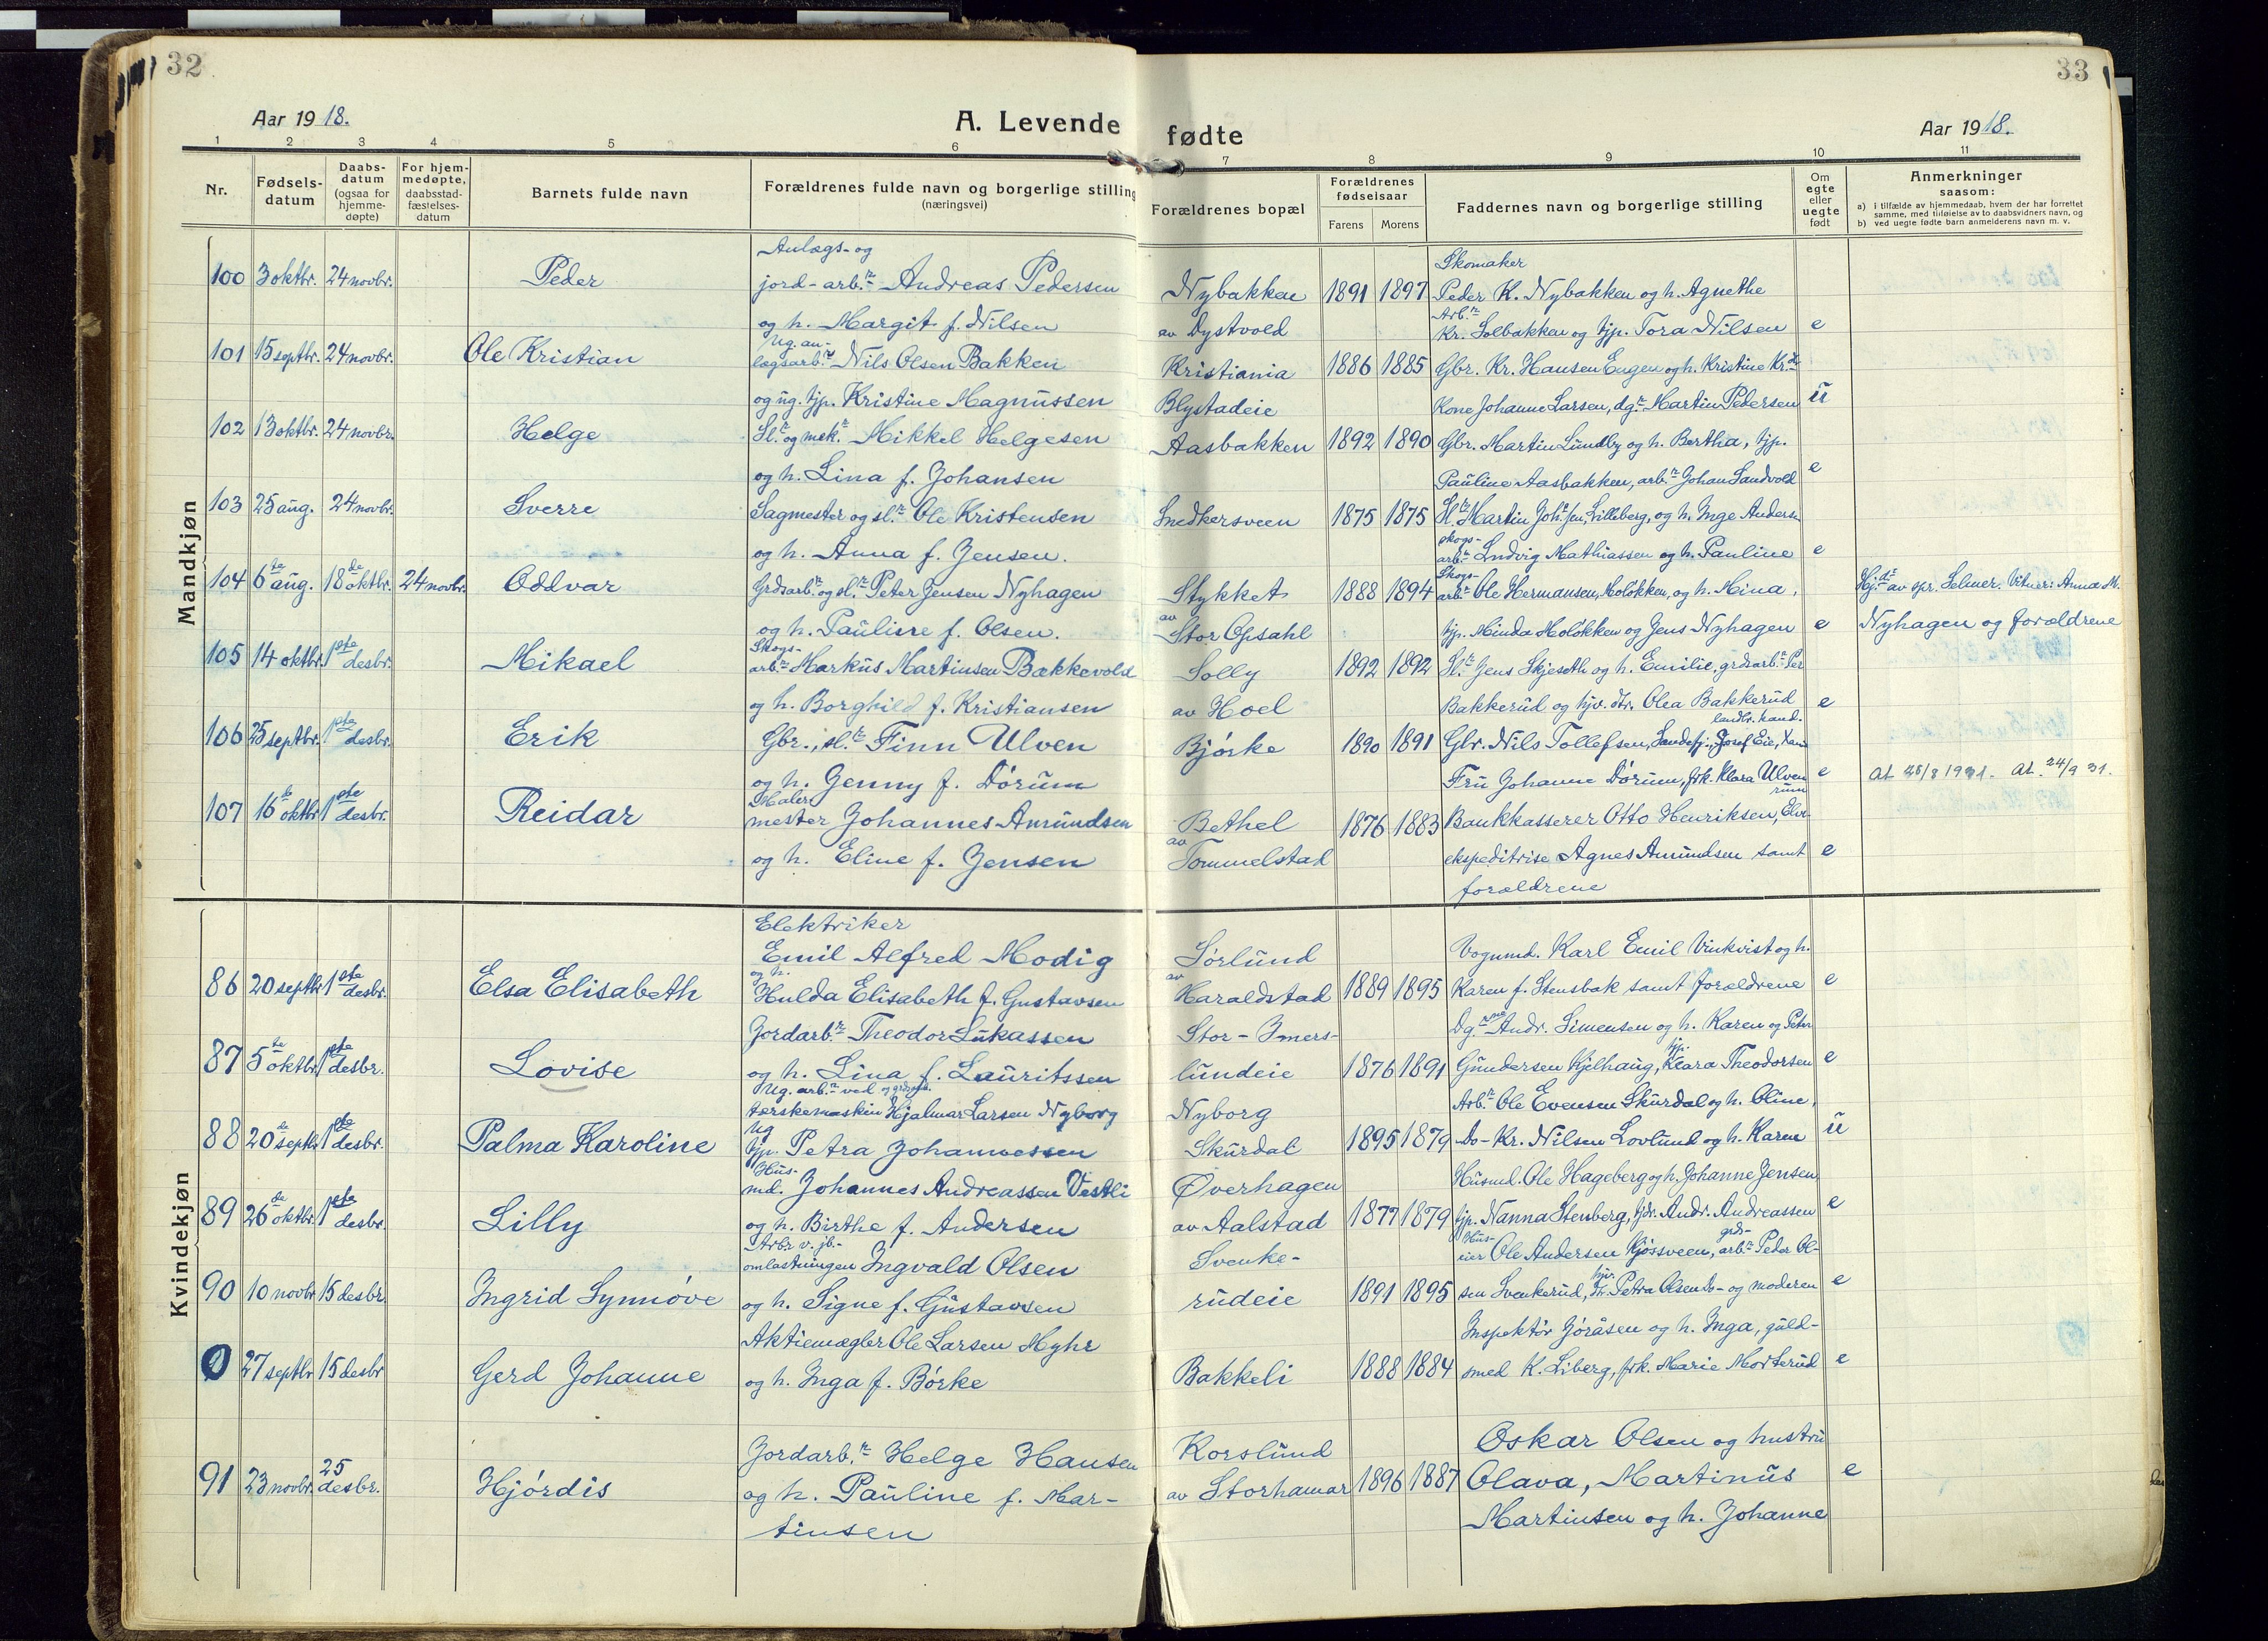 32
33
Aar 1918.
A. Levende fødte
Aar 1918.
1 2 3 4 5 6 7 8 9 10 11
Nr.
Fødsels-datum
Daabs-datum (ogsaa for hjemme-døpte)
For hjem-medøpte, daabsstad-fæstelses-datum
Barnets fulde navn
Forældrenes fulde navn og borgerlige stilling
(næringsvei)
Forældrenes bopæl
Forældrenes fødselsaar
Farens Morens
Faddernes navn og borgerlige stilling
Om egte eller uegte født
Anmerkninger
saasom:
a) i tilfælde av hjemmedaab, hvem der har forrettet
samme, med tilføielse av to daabsvidners navn, og
b) ved uegte fødte barn anmelderens navn m. v.
Mandkjøn
Anlægs- og Skomaker
100 3 oktbr. 24 novbr. Peder jord-arb.r Andreas Pedersen Nybakken 1891 1897 Peder K. Nybakken og h. Agnethe
og h. Margit f. Nilsen av Dystvold Arb.r Kr. Solbakken og tjp. Tora Nilsen e
101 15 septbr. 24 novbr. Ole Kristian Ug. an-lægsarb.r Nils Olsen Bakken Kristiania 1886 1885 Gbr. Kr. Hansen Engen og h. Kristine
og ug. tjp. Kristine Magnussen Blystadeie Kone Johanne Larsen, dg.r Martin Pedersen u
102 13 oktbr. 24 novbr. Helge Sl.r og mek.r Mikkel Helgesen Aasbakken 1892 1890 Gbr. Martin Lundby og h. Bertha, tjp.
og h. Lina f. Johansen Pauline Aasbakken, arb.r Johan Sandvold e
103 25 aug. 24 novbr. Sverre Sagmester og sl.r Ole Kristensen Snedkersveen 1875 1875 Sl.r Martin Lilleberg, og h. Inge Anders.
og h. Anna f. Jensen. skogs-arb.r Ludvig Mathiassen og h. Pauline e
104 6te aug. 18de oktbr. 24 novbr. Oddvar Grdsarb.r og sl.r Peter Jensen Nyhagen Stykket 1888 1894 Skogs-arb.r Ole Hermansen, Molokken, og h. Mina, Hj.d. av spr. Selmer. Vitner: Anna M.
og h. Pauline f. Olsen. av Stor Opsahl tjp. Minda Molokken og Jens Nyhagen e Nyhagen og forældrene
105 14 oktbr. 1ste desbr. Mikael Skogs-arb.r Markus Martinsen Bækkevold Solly 1892 1892 Sl.r Jens Skjeseth og h. Emilie, grdsarb.r Per
og h. Borghild f. Kristiansen av Hoel Bakkerud og hjv. dtr. Olea Bakkerud e
landbr. kand.
106 25 septbr. 1ste desbr. Erik Gbr., sl.r Finn Ulven Bjørke 1890 1891 Gbr. Nils Tollefsen, Josef Eie,
og h. Jenny f. Dørum Fru Johanne Dørum, frk. Klara Ulven e At 25/8 1931. At. 24/9 31.
107 16de oktbr. 1ste desbr. Reidar Maler-mester Johannes Amundsen Bethel 1876 1883 Bankkasserer Otto Henriksen, Elve-rum
og h. Eline f. Jensen av Tommelstad ekspeditrise Agnes Amundsen samt e
forældrene
Kvindekjøn
Elektriker
Emil Alfred Modig Sørlund Vognmd. Karl Emil Vinkvist og h.
86 20 septbr. 1ste desbr. Elsa Elisabeth og h. Hulda Elisabeth f. Gustavsen av Haraldstad 1889 1895 Karen f. Stensbak samt forældrene e
Jordarb.r Theodor Lukassen Stor-Imers- Dg.rne Andr. Simensen og h. Karen og Peter
87 5te oktbr. 1ste desbr. Lovise og h. Lina f. Lauritssen lundeie 1876 1891 Gundersen Kjelhaug, tjp. Klara Theodorsen e
Ug. arb.r ved tærskemaskin Hjalmar Larsen Nyborg Nyborg Arb.r Ole Evensen Skurdal og h. Oline,
88 20de septbr. 1ste desbr. Palma Karoline ug tjp. Petra Johannessen Skurdal 1895 1879 Do- Kr. Nilsen Lovlund og h. Karen u
Hus-md. Johannes Andreassen Vestli Øverhagen Husmd. Ole Hageberg og h. Johanne Jensen
89 26de oktbr. 1ste desbr. Lilly og h. Birthe f. Andersen av Aalstad 1877 1879 tjp. Nanna Stenberg, tjdr. Andr. Andreassen e
Arb.r v. jb.-omlastningen Ingvald Olsen Svenke- Hus-eier Ole Andersen Kjøssveen, grds-arb.r Peder Ol-
90 10 novbr 15 desbr. Ingrid Synnøve og h. Signe f. Gustavsen rudeie 1891 1895 sen Svenkerud, hjv. dtr. Petra Olsen Do- og moderen e
Aktiemægler Ole Larsen Myhr Inspektør Jøråsen og h. Inga, guld-
0 27 septbr 15 desbr Gerd Johanne og h. Inga f. Børke Bakkeli 1888 1884 smed K. Liberg, frk. Marie Morterud e
Jordarb.r Helge Hansen Korslund Oskar Olsen og hustru
91 23 novbr. 25 desbr. Hjørdis og h. Pauline f. Mar- av Storhamar 1896 1887 Olava, Martinus e
tinsen Martinsen og h. Johanne